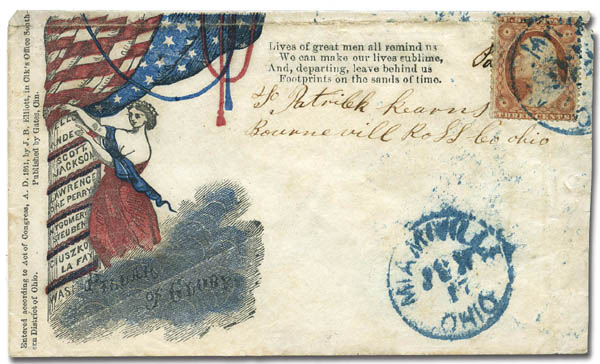 Entered according to Act of Congress, A. D. 1861, by J. B. Elliott, in Clk's Office South-
ern District of Ohio. Published by Gates, Cin.
Lives of great men all remind us
We can make our lives sublime,
And, departing, leave behind us
Footprints on the sands of time.
To Patrick kearns
Bourneville Ross Co ohio
THREE CENTS
SCOTT
JACKSON
LAWRENCE
PERRY
STEUBEN
LA FAY
WAS
of Glory
MIAMIVILLE
17
OHIO